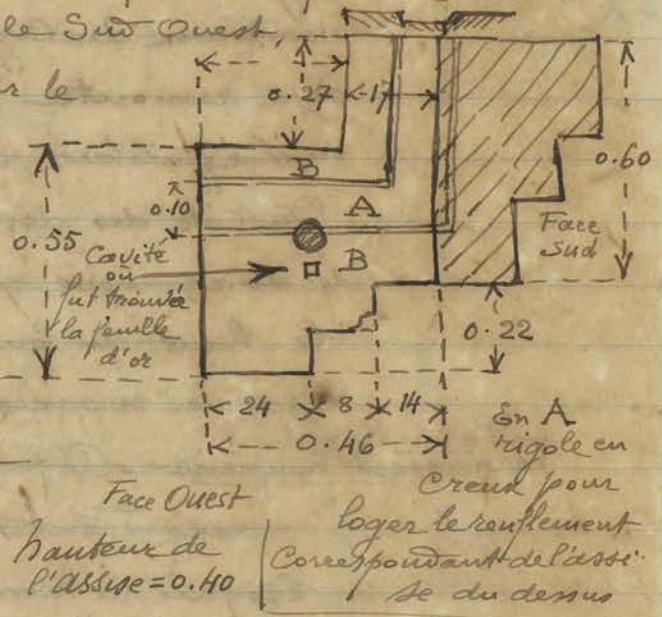 le Sud Ouest,
r le
0.27
17
B
0.10
A
0.60
0.55
Cavité
où
fut trouvée
la feuille
d'or
B
Face
Sud
0.22
24
8
14
0.46
En A
rigole en
Creux pour
loger le renflement
Correspondant de l'assi-
se du dessus
Face Ouest
hauteur de
l'assise = 0.40